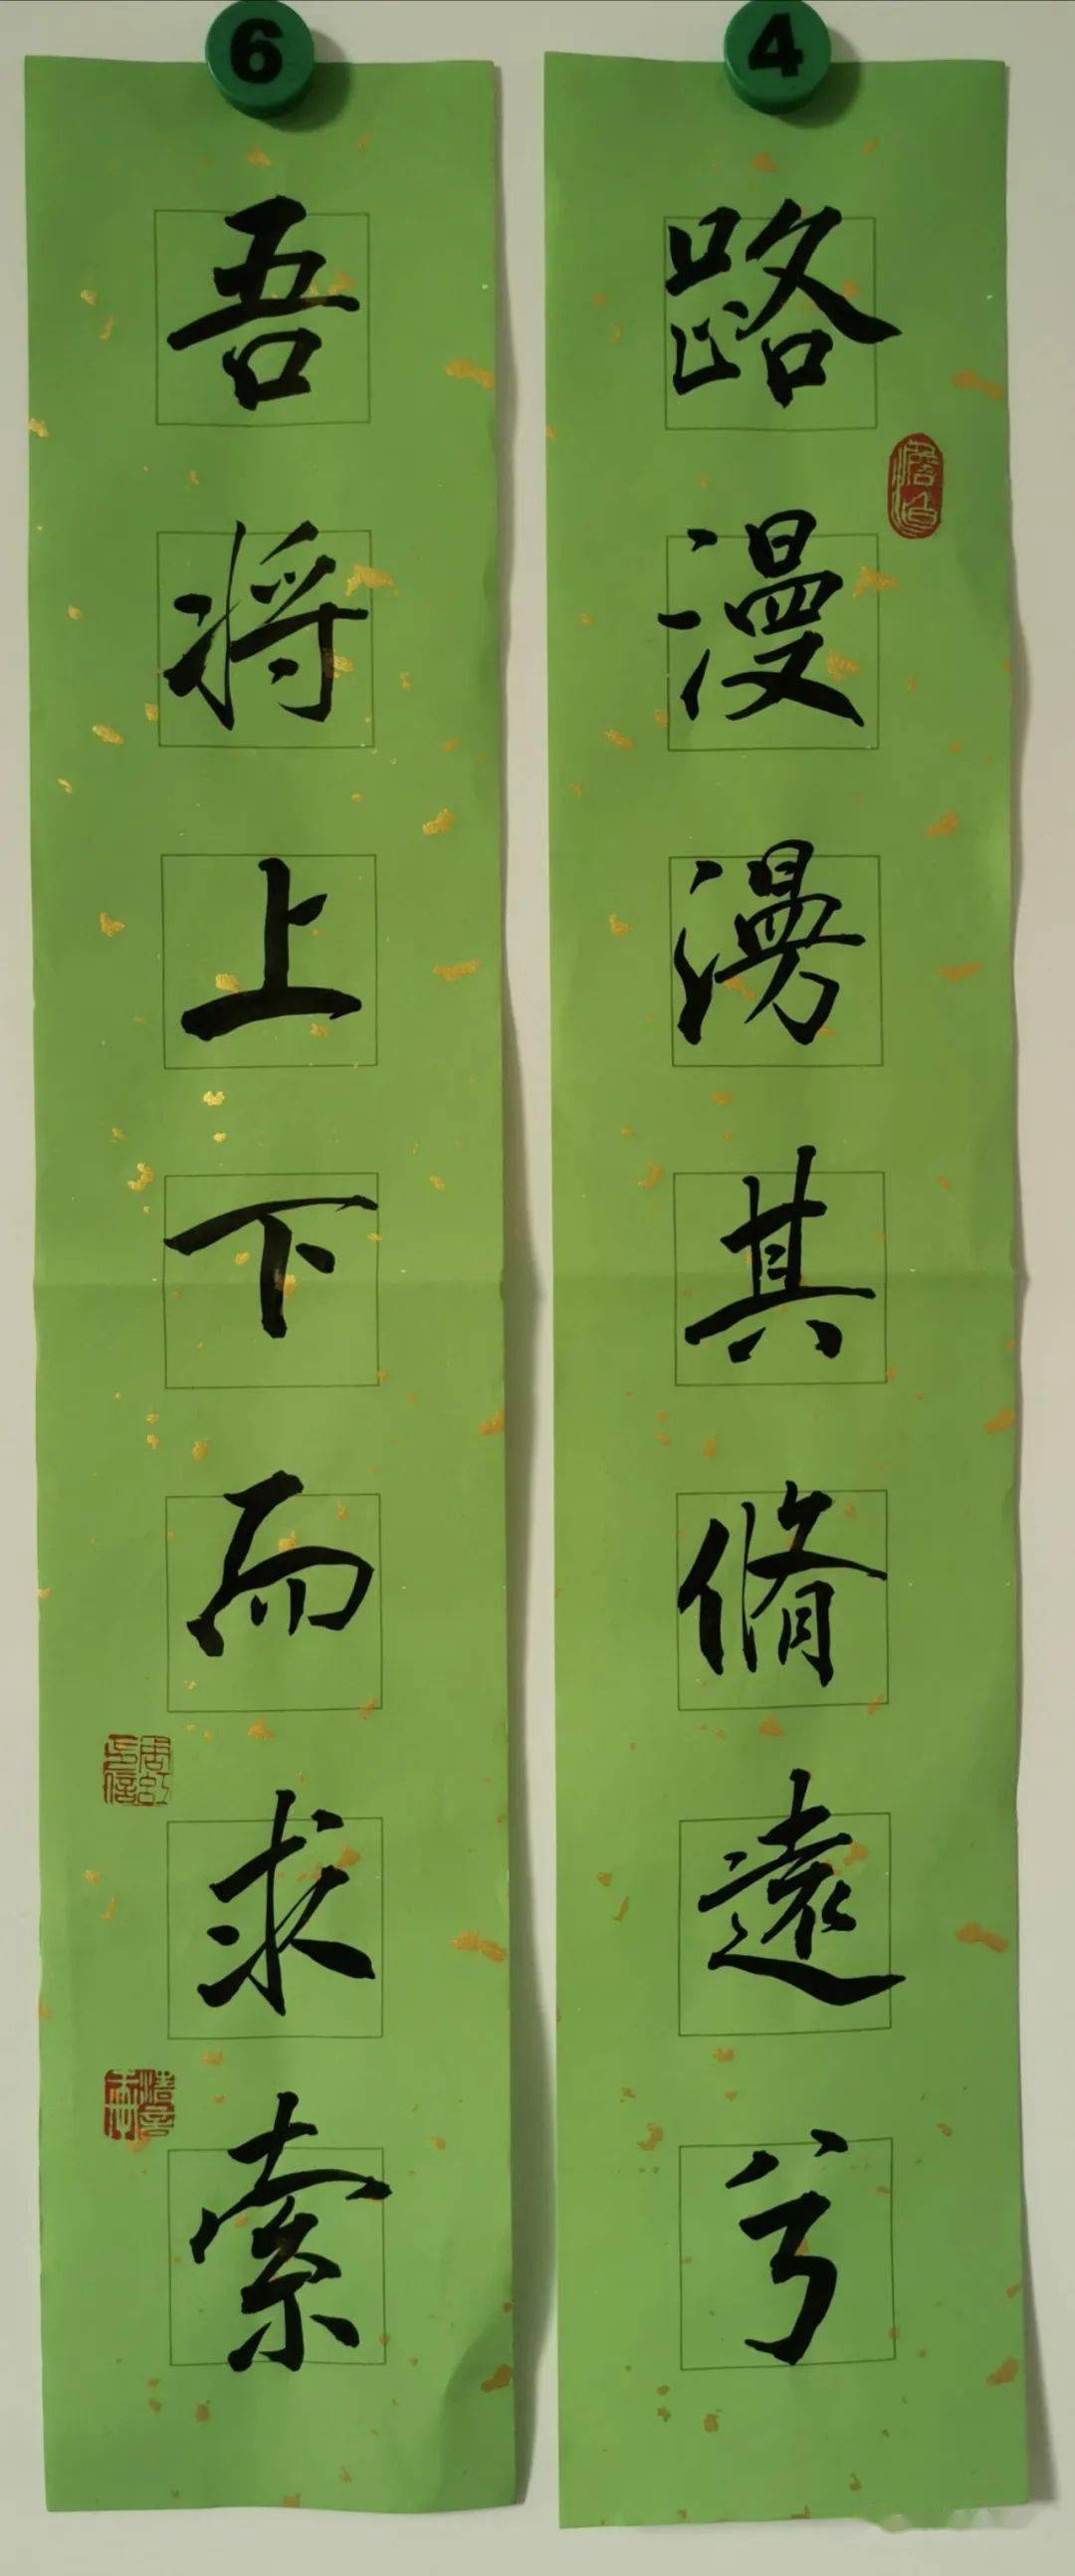 4
路漫漫其脩遠兮
6
吾将上下而求索